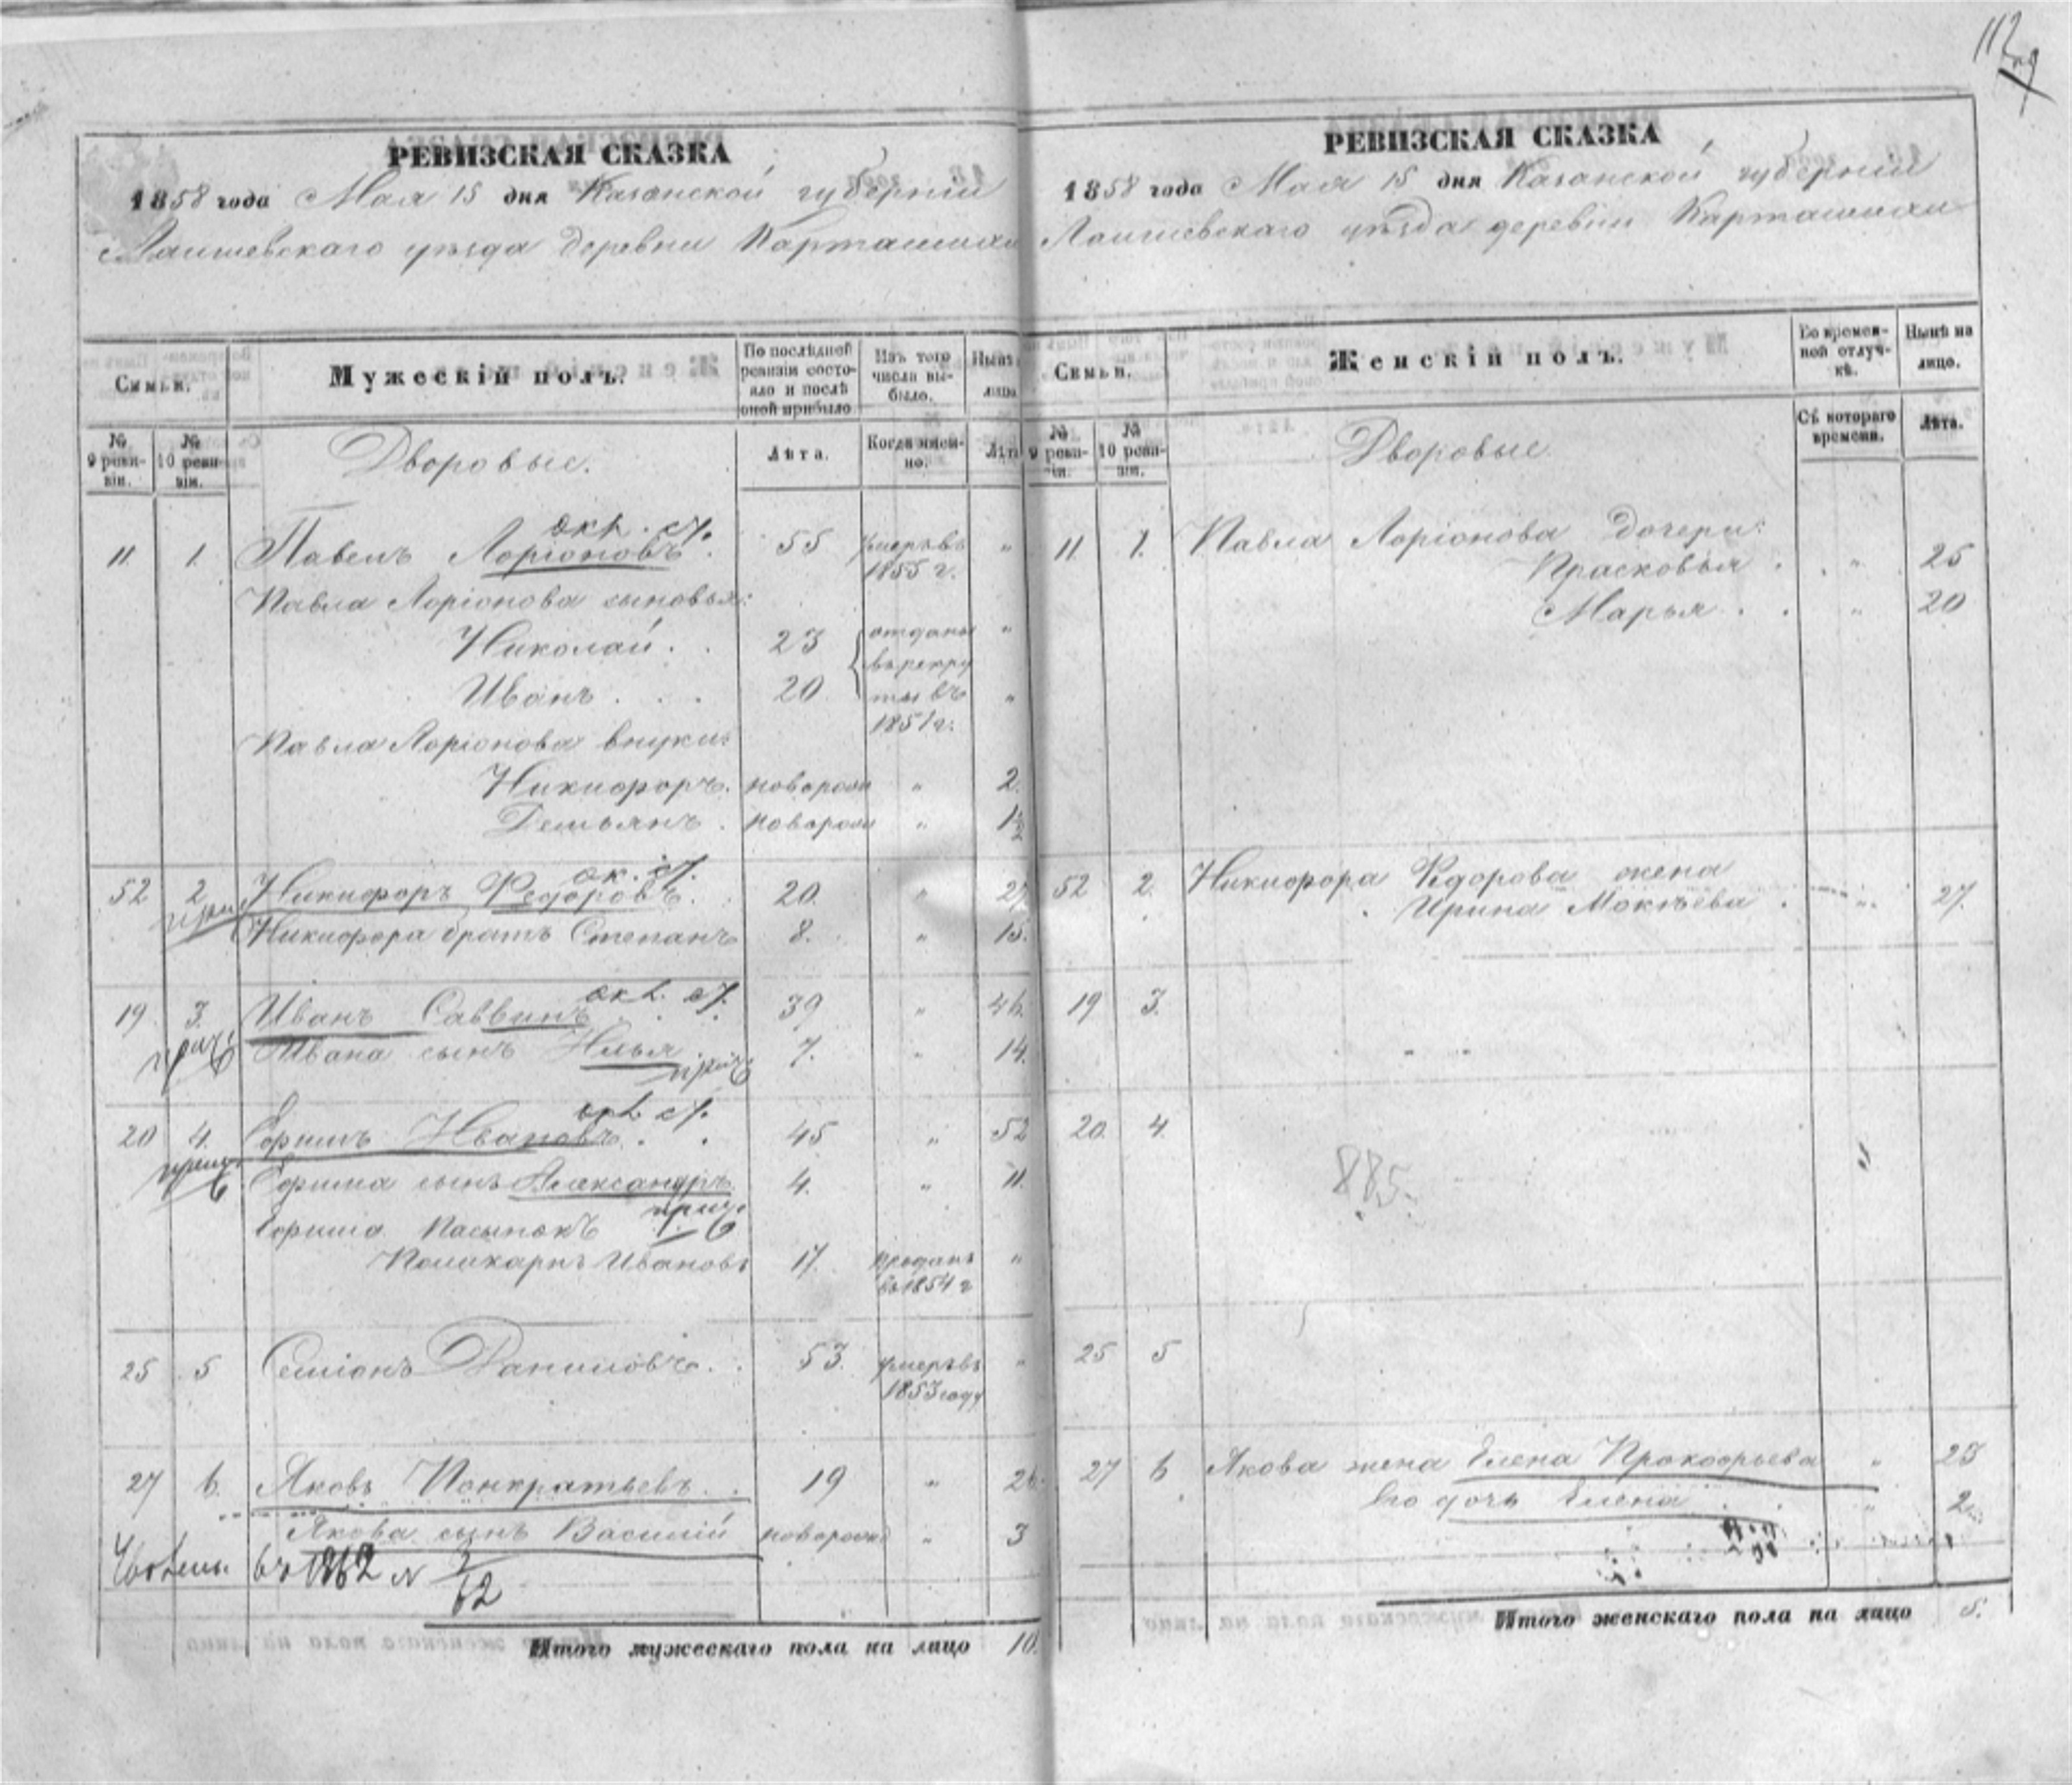 РЕВИЗСКАЯ СКАЗКА
1858 года Мая 15 дня Казанской губерніи
Лаишевскаго уѣзда деревни Карташихи
Семьи.
Мужескій полъ.
По послѣдней ревизіи состояло и послѣ оной прибыло
Изъ того числа выбыло.
Нынѣ лицо
№ 9 ревизіи.
№ 10 ревизіи.
Дворовые.
Лѣта.
Когда именно.
Лѣта
11. 1. Павелъ Ларіоновъ. 55 умеръ въ 1855 г. "
Павла Ларіонова сыновья:
Николай. . 23 отданы "
Иванъ . . . 20 въ рекруты въ 1851 г. "
Павла Ларіонова внуки:
Никифоръ. новорожд " 2.
Демьянъ. новорожд "
52 2 Никифоръ Федоровъ. 20. " 27
Никифора братъ Степанъ 8. " 15.
19 3. Иванъ Саввинъ 39 " 46.
Ивана сынъ Илья 7. " 14.
20 4. Ефимъ Ивановъ. . 45 " 52
Ефима сынъ Александръ 4. " 11.
Ефима пасынокъ
Поликарпъ Ивановъ 17. проданъ въ 1854 г "
25 5 Семіонъ Даниловъ. . 53. умеръ въ 1853 году "
27 6. Яковъ Панкратьевъ. . 19 " 26.
Якова сынъ Василій новорожд " 3
въ 1862 № 3/62
Итого мужескаго пола на лицо 10.
112
РЕВИЗСКАЯ СКАЗКА
1858 года Мая 15 дня Казанской губерніи
Лаишевскаго уѣзда деревни Карташихи
Семьи.
Женскій полъ.
Во временной отлучкѣ.
Нынѣ на лицо.
№ 9 ревизіи.
№ 10 ревизіи.
Дворовые
Съ котораго времени.
Лѣта.
11. 1. Павла Ларіонова дочери:
Прасковья . . " 25
Марья . . " 20
52 2. Никифора Федорова жена
Ирина Мокѣева . " 27.
19 3.
20. 4.
885.
25 5
27 6 Якова жена Елена Прокофьева " 25
Его дочь Елена . . "
Итого женскаго пола на лицо 5.